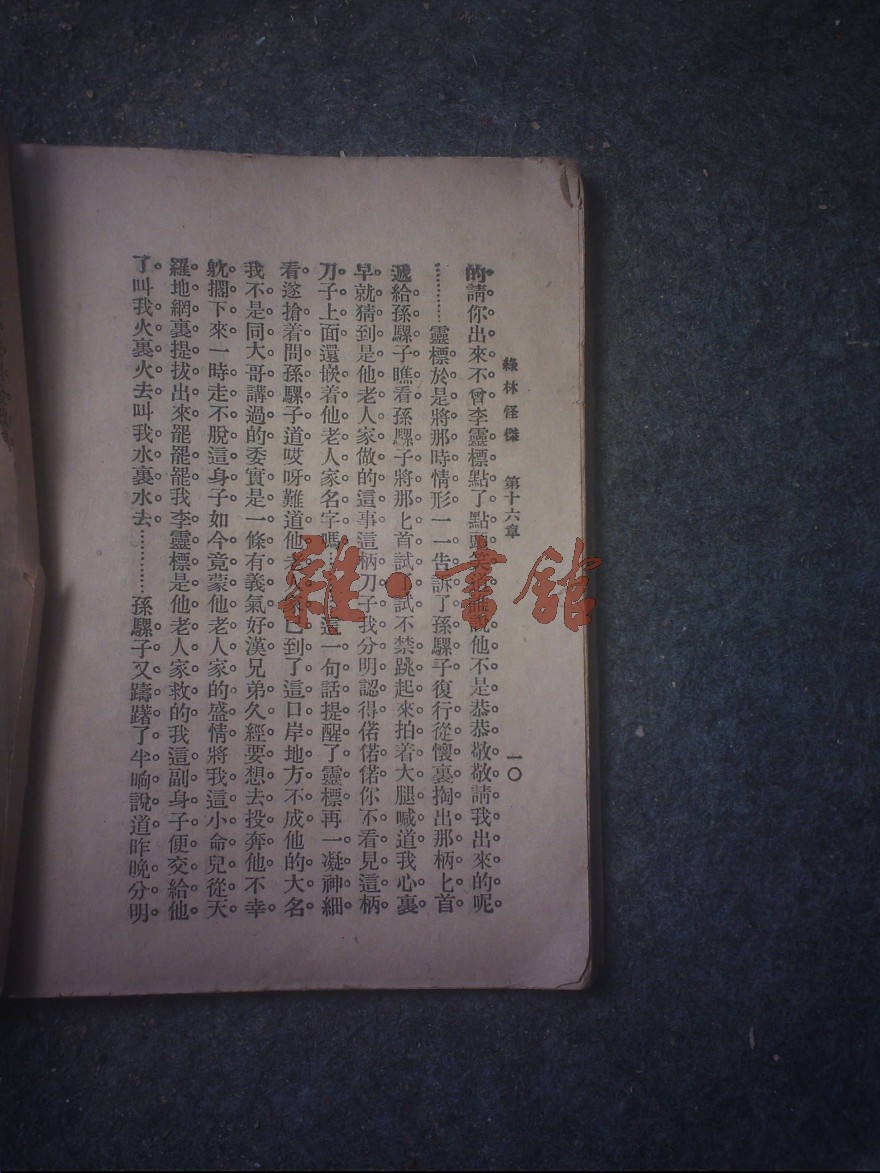 綠林怪傑 第十六章 一〇
的請你出來不曾李靈標點了點頭笑說他不是恭恭敬敬請我出來的呢
…………靈標於是將那時情形一一告訴了孫騾子復行從懷裏掏出那柄匕首
遞給孫騾子瞧看孫騾子將那匕首試上試不禁跳起來拍着大腿喊道我心裏
早就猜到是他老人家做的這事這柄刀子我分明認得偌偌偌你不看見這柄
刀子上面還嵌着他老人家名字嗎……這一句話提醒了靈標再一凝神細
看遂搶着問孫騾子道哎呀難道他老人家已到了這口岸地方不成他的大名
我不是同大哥講過的委實是一條有義氣好漢兄弟久經要想去投奔他不幸
躭擱下來一時走不脫這身子如今竟蒙他老人家的盛情將我這小命兒從天
羅地網裏提拔出來罷罷罷我李靈標是他老人家救的我這副身子便交給他
了叫我火裏火去叫我水裏水去…………孫騾子又躊躇了半晌說道昨晚分明
雜·書館